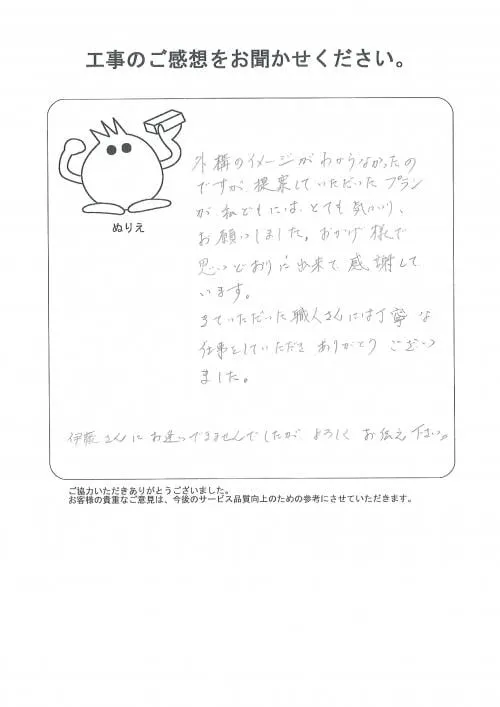 工事のご感想をお聞かせください。
ぬりえ
外構のイメージがわからなかったの
ですが提案していただいたプラン
が私どもには、とても気にいり、
お願いしました。おかげ様で
思いどおりに出来て感謝して
います。
きていただった職人さんには丁寧な
仕事をしていただき ありがとう ござい
ました。
伊藤さんにお逢いできませんでしたが よろしく お伝え下さい。
ご協力いただきありがとうございました。
お客様の貴重なご意見は、今後のサービス品質向上のための参考にさせていただきます。